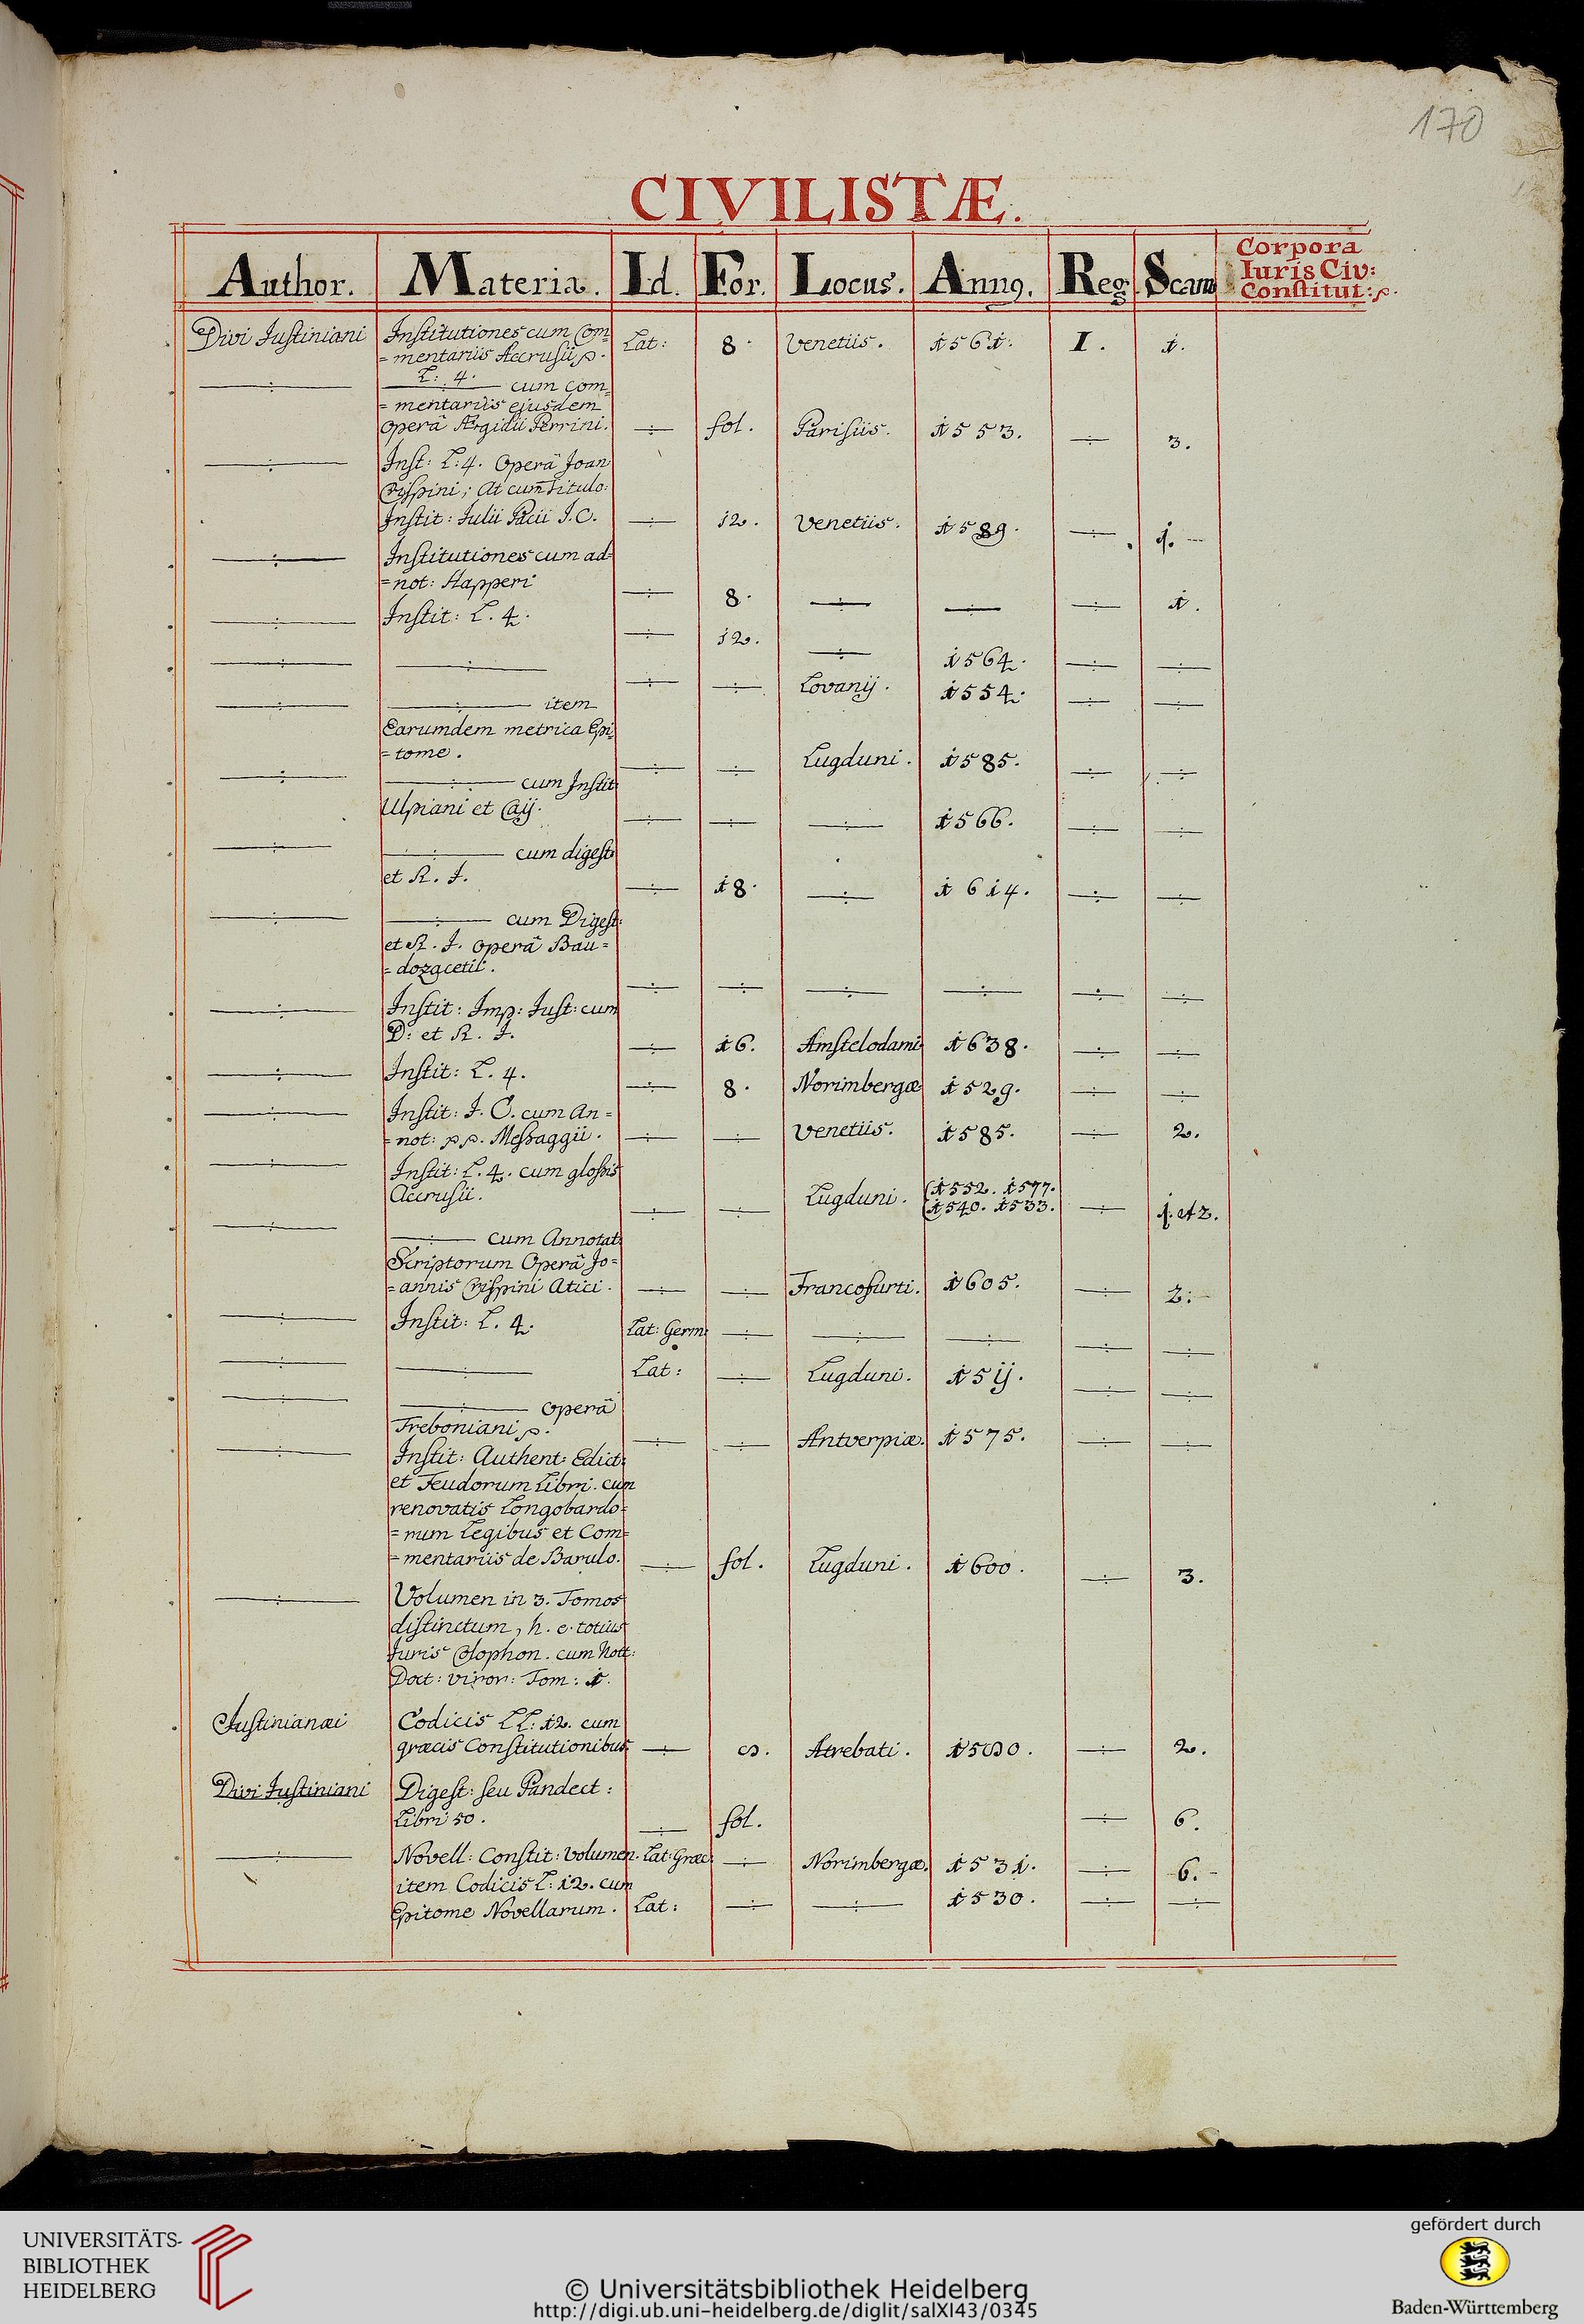 170
CIVILISTÆ.
Author. Materia. Id. For. Locus. Anno. Reg. Scam
Corpora
Iuris Civ:
Constitut:
Divi Justiniani Institutiones cum Com
=mentariis Accrusii Lat: 8. Venetiis. 1561. I. 1.
L: 4.
cum com=
=mentariis ejusdem
operâ Ægidii Perrini. fol. Parisiis. 1553. 3.
Inst: L: 4. Operâ Joan
Crispini; at cum Titulo:
Instit: Julii Pacii J.C. 12. Venetiis. 1589. 1.
Institutiones cum ad=
=not: Happeri 8. 1.
Instit: L. 4. 12. 1564.
Lovanij. 1554.
item
Earumdem metrica Epi=
=tome. Lugduni. 1585.
cum Instit:
Ulpiani et Caij. 1566.
cum digest:
et R. J. 18. 1614.
cum Digest:
et R. J. operâ Bau=
=dozacetii.
Instit: Imp: Just: cum
D: et R. J. 16. Amstelodami 1638.
Instit: L. 4. 8. Norimbergæ 1529.
Instit: J. C. cum An=
=not: Messaggii. Venetiis. 1585. 2.
Instit: L. 4. cum glossis
Accrusii. Lugduni. 1552. 1577.
1540. 1533. 1. et 2.
cum Annotat:
Scriptorum Operâ Jo=
=annis Crispini Atici. Francofurti. 1605. 2.
Instit: L. 4. Lat: Germ:
Lat: Lugduni. 15ij.
operâ
Treboniani Antverpiæ. 1575.
Instit: Authent: Edict:
et Feudorum Libri. cum
renovatis Longobardo=
=rum Legibus et Com=
=mentariis de Barulo. fol. Lugduni. 1600. 3.
Volumen in 3. Tomos
distinctum, h. e. totius
Juris Colophon. cum Nott:
Doct: viror: Tom: 1.
Justinianæi Codicis LL: 12. cum
græcis Constitutionibus Atrebati. 2.
Divi Justiniani Digest: seu Pandect:
Libri 50. fol. 6.
Novell: Constit: volumen. Lat: Græc: Norimbergæ. 1531. 6.
item Codicis L: 12. cum
Epitome Novellarum. Lat: 1530.
UNIVERSITÄTS-
BIBLIOTHEK
HEIDELBERG
© Universitätsbibliothek Heidelberg
http://digi.ub.uni-heidelberg.de/diglit/salXI43/0345
gefördert durch
Baden-Württemberg